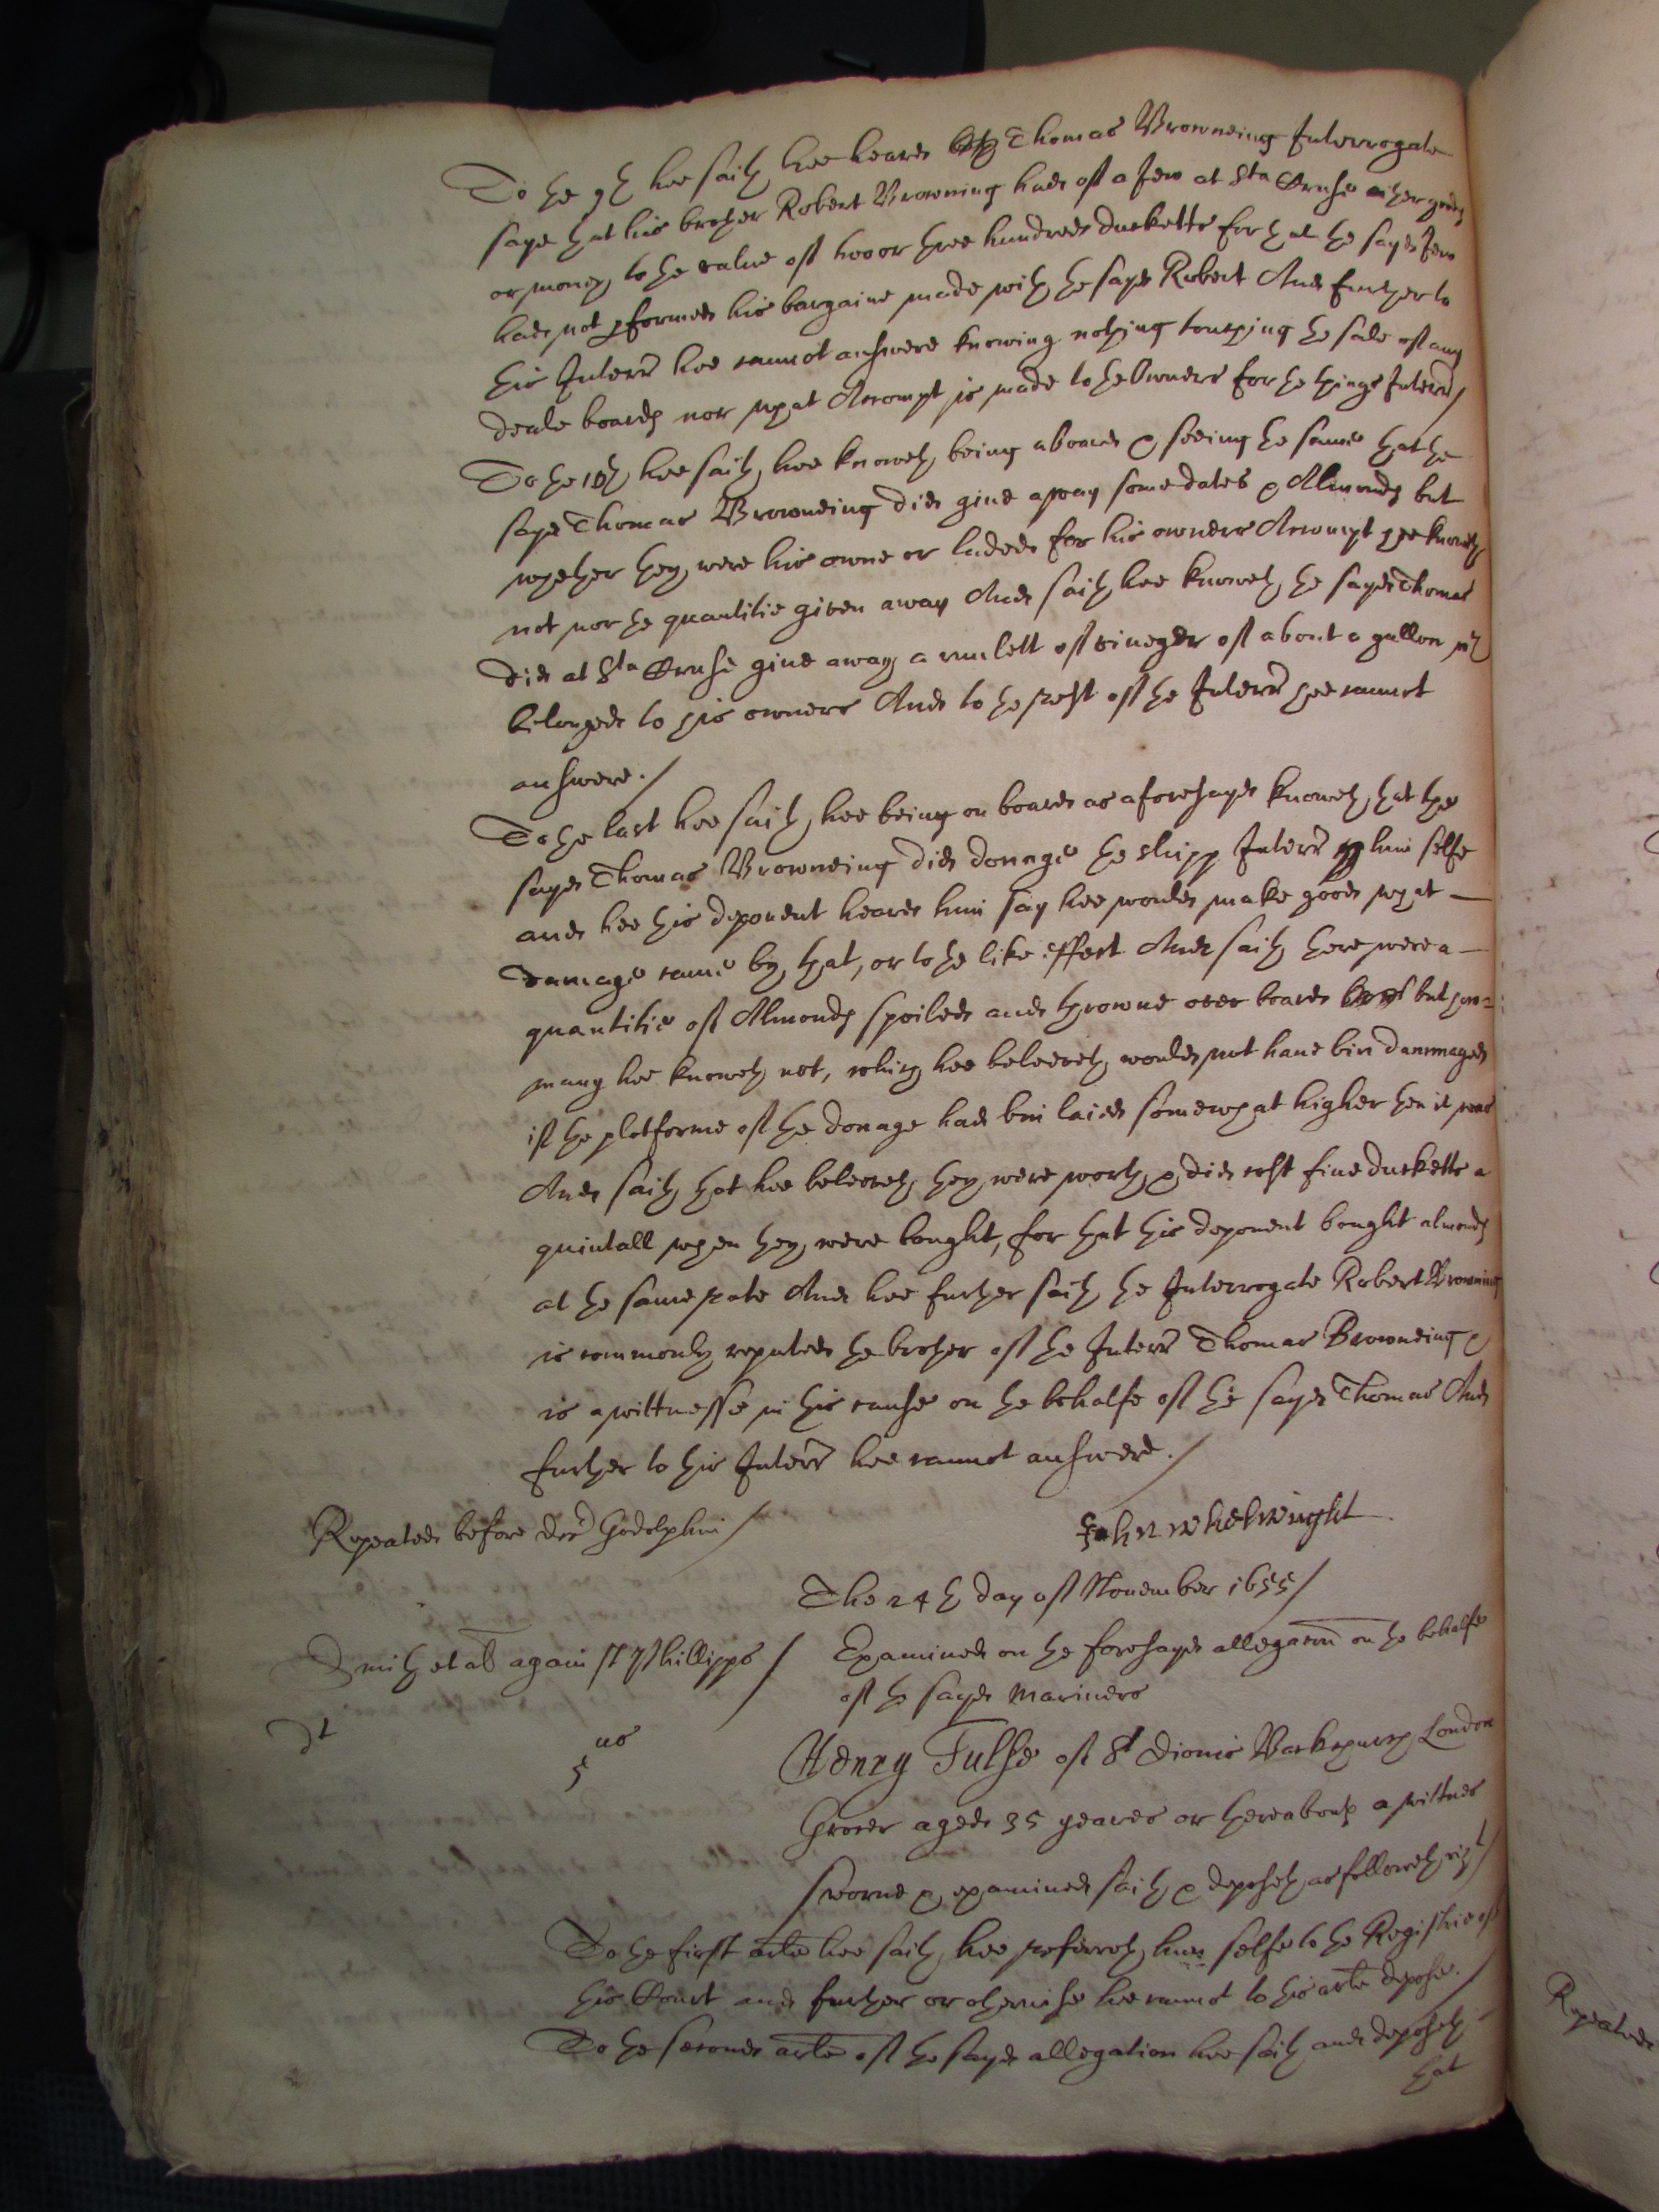 To the 9th hee saith hee heard Thomas Browneing Interrogate
saye that his brother Robert Browning had of a Jew at Sta Cruse either goods
or money to the value of two or three hundred ducketts for that the sayd Jew
had not pformed his bargaine made with the sayd Robert And further to
this Interr hee cannot answere knowing nothing touching the sale of any
deale boards nor what Accompt is made to the Owners for the things Interr /
To the 10th hee saith hee knoweth being aboard & seeing the same that the
sayd Thomas Browneing did give away some dates & Almonds but
whether they were his owne or laded for his owners Accompt hee knoweth
not nor the quantitie given away And saith hee knoweth the sayd Thomas
did at Sta Cruse give away a runlett of vineger of about a gallon wch
belonged to his owners And to the rest of the Interr hee cannot
answere ./
To the last hee saith hee being on board as aforesayd knoweth that the
sayd Thomas Browneing did donnage the shipp Interr him selfe
and hee this deponent heard him say hee would make good what
damage came by that, or to the like effect And saith there were a
quantitie of Almonds spoiled and throwne over board but how=
many hee knoweth not, which hee beleeveth would not have bin dammaged
if the platforme of the donage had bin laied somewhat higher then it was
And saith that hee beleeveth they were worth & did cost five ducketts a
quintall when they were bought, for that this deponent bought almonds
at the same rate And hee further saith the Interrogate Robert Browning
is commonly reputed the brother of the Interr Thomas Browneing &
is a wittnesse in this cause on the behalfe of the sayd Thomas And
further to this Interr hee cannot answere ./
Repeated before Dor Godolphin /
John whelwright
The 24th day of November 1655 /
Smith et al against Phillipps /
Examined on the foresayd allegacon on the behalfe
of the sayd Mariners
dt
5us
Henry Fulse of St Dionis Backchurch London
Grocer aged 35 yeares or thereabouts a wittnes
sworne & examined saith & deposeth as followeth vizt /
To the first arle hee saith hee referreth him selfe to the Registrie of
this Court and further or otherwise hee cannot to this arle depose. /
To the second arle of the sayd allegation hee saith and deposeth
that
Repeated